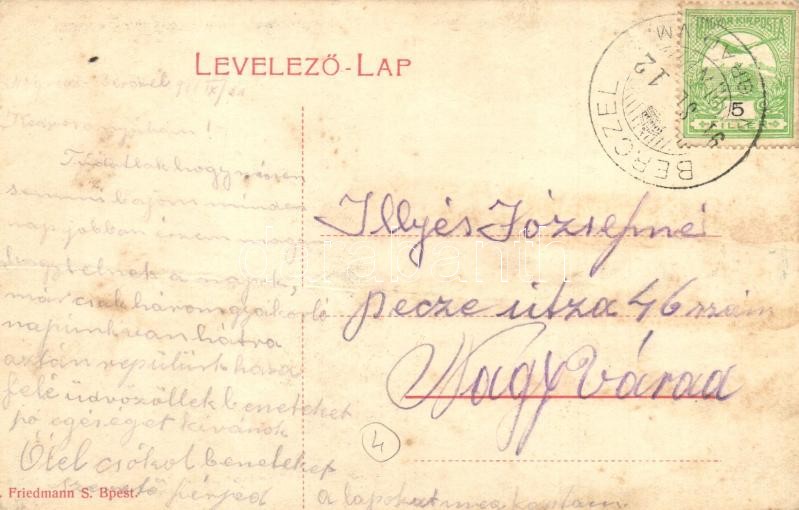 LEVELEZŐ-LAP
MAGYAR KIR. POSTA
5
FILLÉR
BERCZEL
12
911 IX/21
Tudatlak hogy
semmi bajom minden
nap jobban érzem magam
a napok,
már csak három gyakorló
napunk van hátra
aztán repülünk haza
felé üdvözöllek beneteket
jó egéséget kivánok
Ölel csókol beneteket
szerető férjed
a lapokat meg kaptam
Illyés Józsefné
pecze útza 46 szám
Nagy Várad
4
Friedmann S. Bpest.